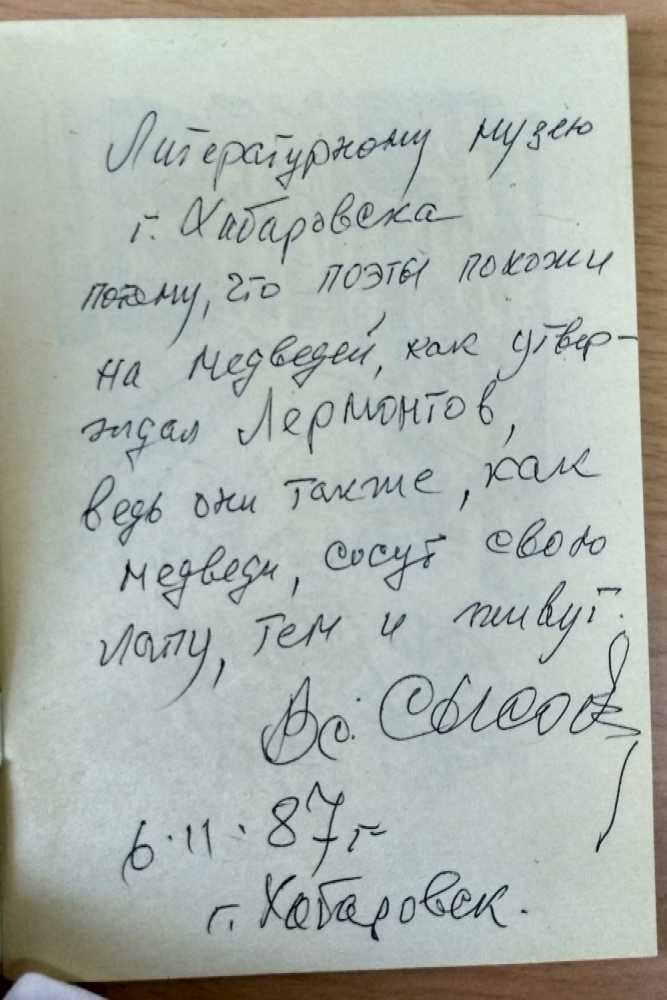 Литературному музею
г. Хабаровска
потому, что поэты похожи
на медведей, как утвер-
ждал Лермонтов,
ведь они также, как
медведи, сосут свою
лапу, тем и живут.
Вс. Сысоев
6.11.87 г.
г. Хабаровск.